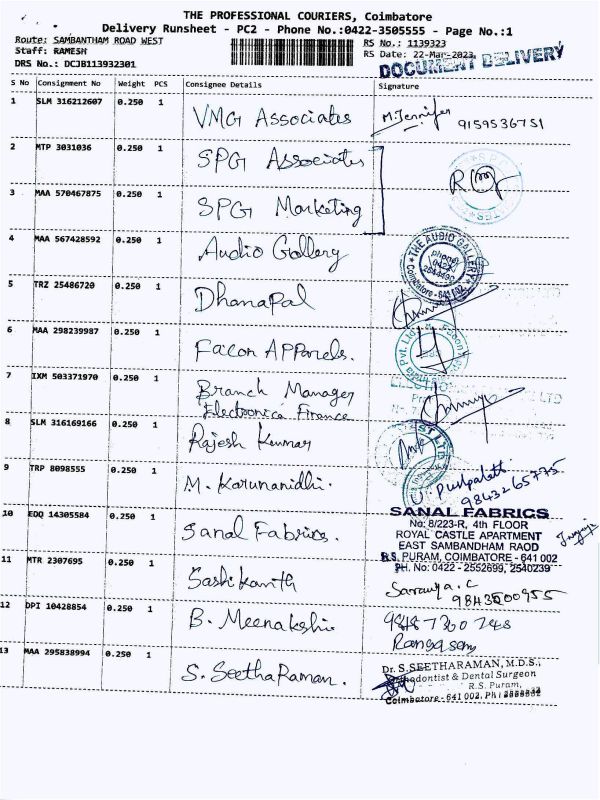 THE PROFESSIONAL COURIERS, Coimbatore
Delivery Runsheet - PC2 - Phone No.:0422-3505555 - Page No.:1
Route: SAMBANTHAM ROAD WEST
Staff: RAMESH
DRS No.: DCJB113932301
RS No.: 1139323
RS Date: 22-Mar-2023
DOCUMENT DELIVERY
S No Consignment No Weight PCS Consignee Details Signature
1 SLM 316212607 0.250 1 VMG Associates M.Jennifer 9159536751
2 MTP 3031036 0.250 1 SPG Associates
3 MAA 570467875 0.250 1 SPG Marketing
4 MAA 567428592 0.250 1 Audio Gallery THE AUDIO GALLERY Coimbatore - 641 002
5 TRZ 25486720 0.250 1 Dhanapal
6 MAA 298239987 0.250 1 Facon Apparels.
7 IXM 503371970 0.250 1 Branch Manager
Electronica Finance
8 SLM 316169166 0.250 1 Rajesh Kumar
9 TRP 8098555 0.250 1 M. Karunanidhi. 9843265775
10 EDQ 14305584 0.250 1 Sanal Fabrics. SANAL FABRICS
No: 8/223-R, 4th FLOOR
ROYAL CASTLE APARTMENT
EAST SAMBANDHAM RAOD
R.S. PURAM, COIMBATORE - 641 002
PH. No: 0422 - 2552699, 2540239
11 MTR 2307695 0.250 1 Sashikanth Saranya.C
9843500955
12 DPI 10428854 0.250 1 B. Meenakshi
Rangasamy
13 MAA 295838994 0.250 1 S. SeethaRaman. Dr. S.SEETHARAMAN, M.D.S.,
Orthodontist & Dental Surgeon
R.S. Puram,
Coimbatore - 641 002.